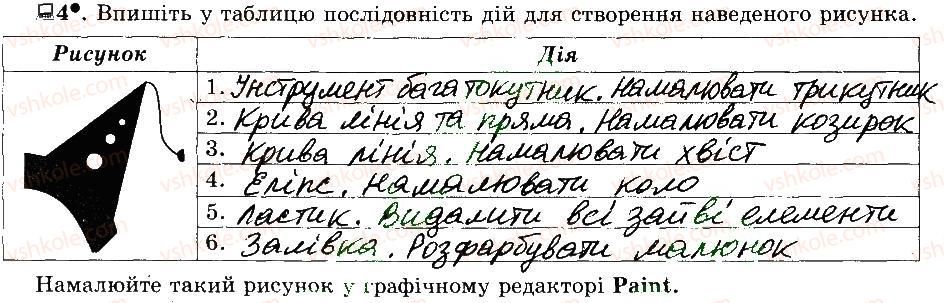 4. Впишіть у таблицю послідовність дій для створення наведеного рисунка.
Рисунок Дія
1. Інструмент багатокутник. Намалювати трикутник
2. Крива лінія та пряма. Намалювати козирок
3. Крива лінія. Намалювати хвіст
4. Еліпс. Намалювати коло
5. Ластик. Видалити всі зайві елементи
6. Залівка. Розфарбувати малюнок
Намалюйте такий рисунок у графічному редакторі Paint.